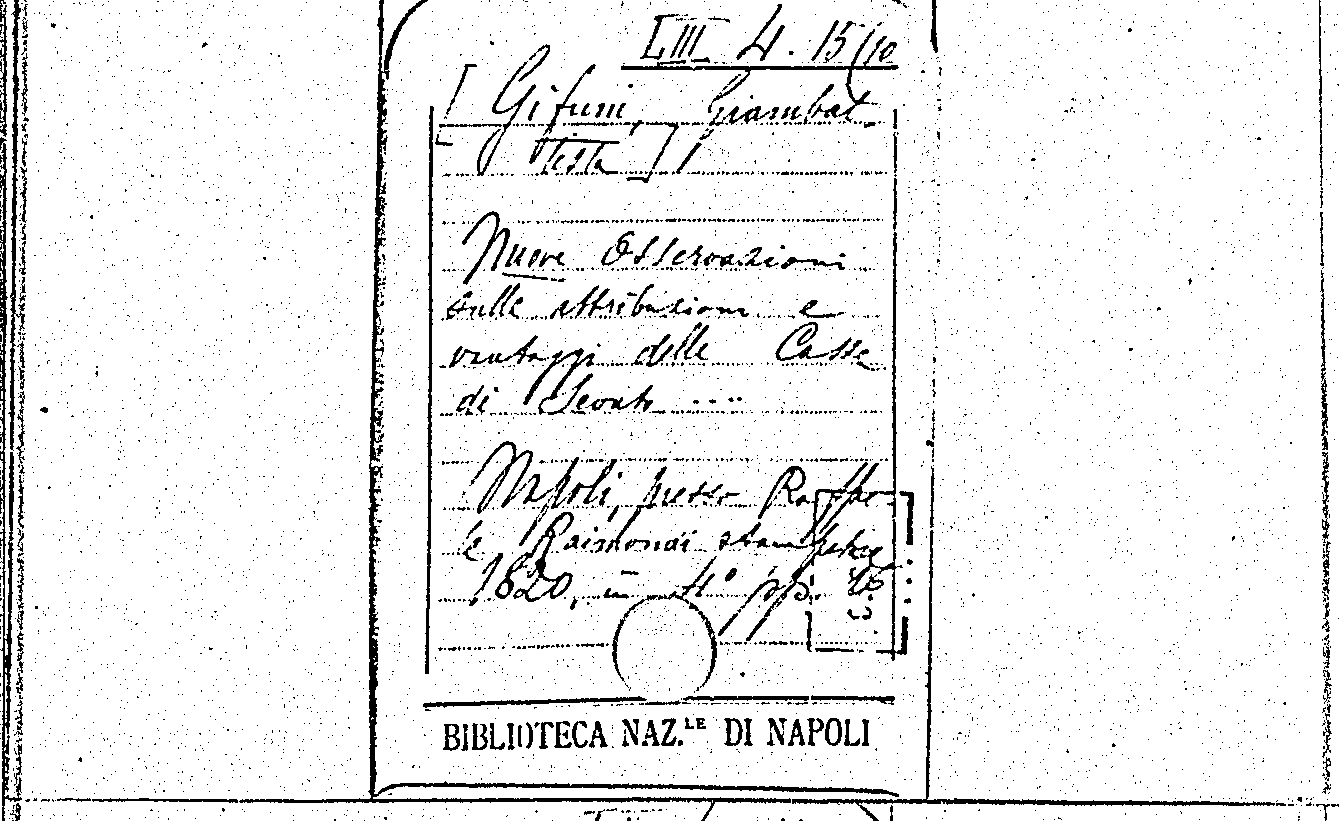 LIII 4. 15(10
[ Gifuni, Giambat-
tista ]
Nuove Osservazioni
sulle attribuzioni e
vantaggi delle Casse
di Sconto ....
Napoli, presso Raffae-
le Raimondi stampatore
1820, in 4° pp.
BIBLIOTECA NAZ.LE DI NAPOLI